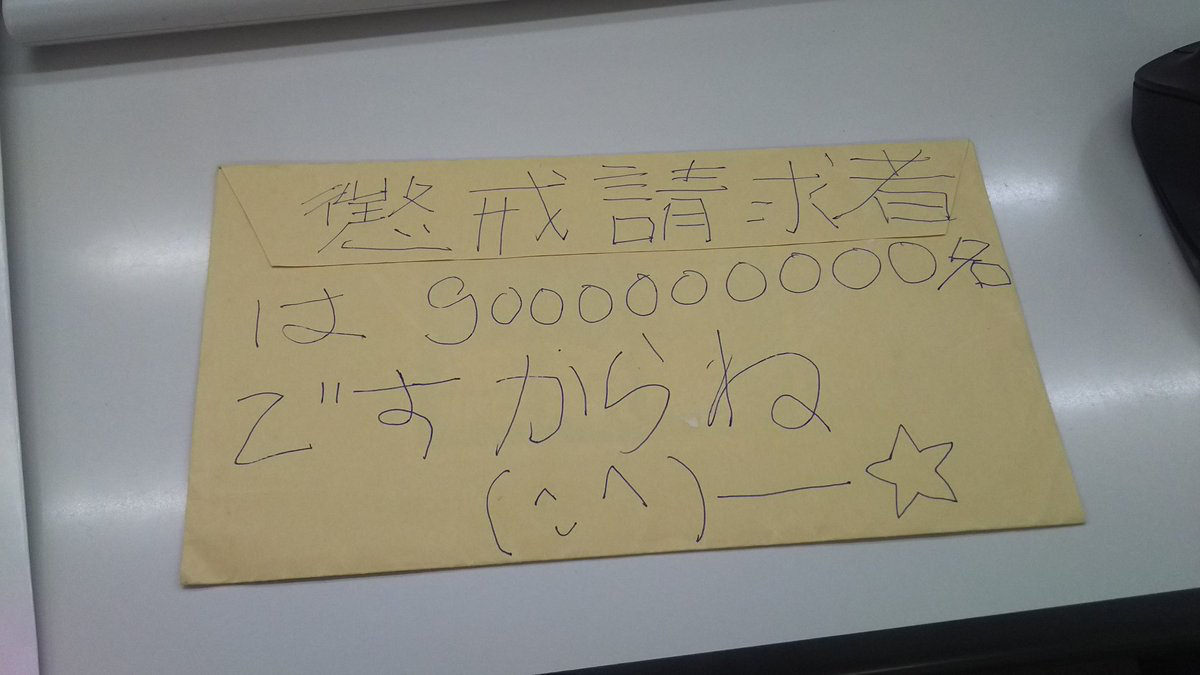 懲戒請求者
は9000000000名
ですからね
(^ ᵕ ^)―☆